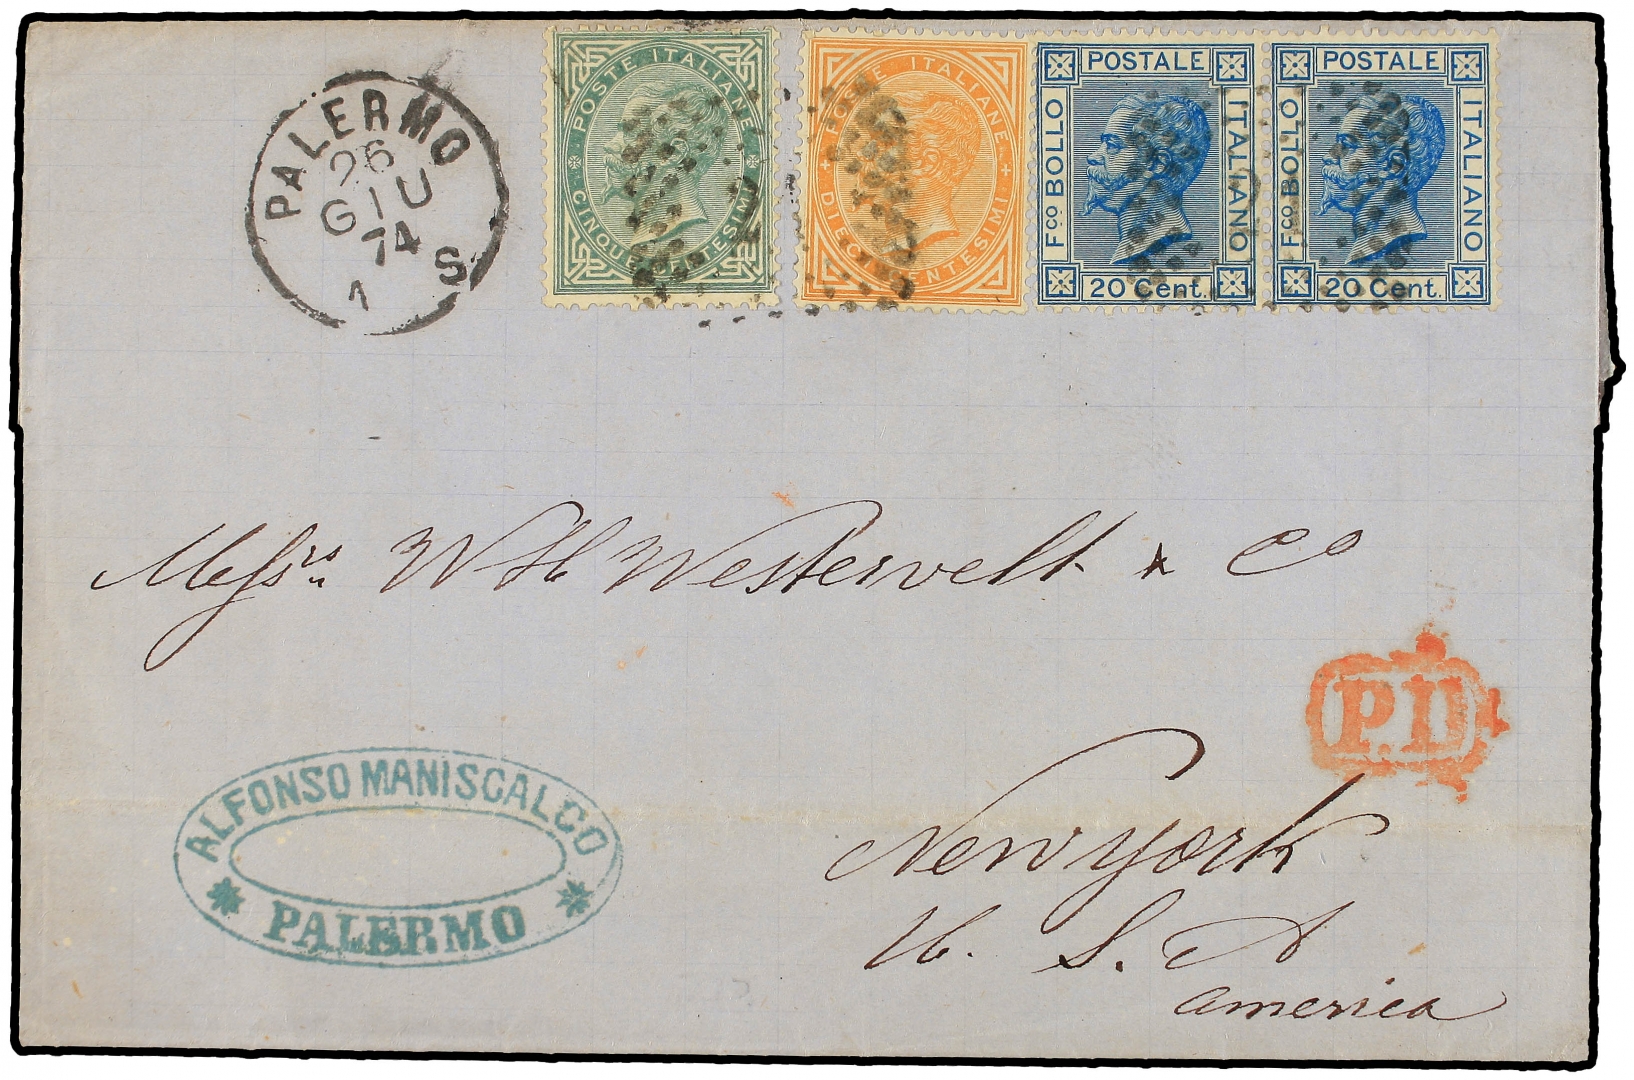 PALERMO
26
GIU
74
1 S
POSTE ITALIANE
CINQUE CENTESIMI
POSTE ITALIANE
DIECI CENTESIMI
POSTALE
Fco BOLLO
ITALIANO
20 Cent.
POSTALE
Fco BOLLO
ITALIANO
20 Cent.
Messrs W H Westervelt & Co
P.D
ALFONSO MANISCALCO
PALERMO
New york
U. S. A
america